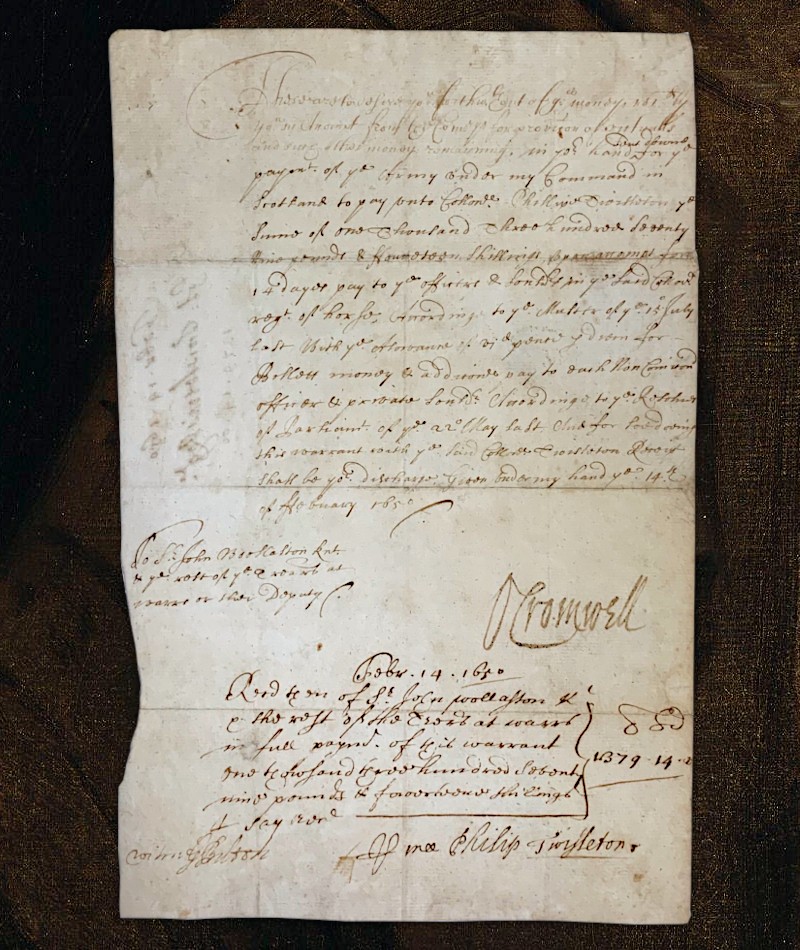 These are to desire yow forthwth out of ye moneys
and any other money remayning in yor hands for ye
paymt. of ye Army under my Command in
Scotland to pay unto Collonel Phillip Twisleton ye
Sume of one Thousand Three hundred Seventy
Nine pounds & ffowerteen Shillings
14 dayes pay to ye officers & Souldrs in ye said Collon
regt. of horse, Accordinge to ye Muster of ye 15 July
last With ye allowance of pence p diem for
Billett money & addicional pay to each Non Comicond
officer & private Souldr. Accordinge to ye
of Parliamt. of ye 22 May last And for soe doeing
this warrant with ye said Collo Twisleton Receit
shall be yor. discharge. Given under my hand ye 14th
of ffebruary 1650
To Sr. John Wollaston Knt.
& ye rest of ye Trears at
warre or their Deputy
O Cromwell
Febr. 14. 1650
Recd then of Sr. John Wollaston Kt
& the rest of the Trers at warrs
in full paymt. of this warrant
one thowsand three hundred Seventy
nine pounds & fowerteene shillings
I say recd
1379-14-
p mee Philip Twisleton.